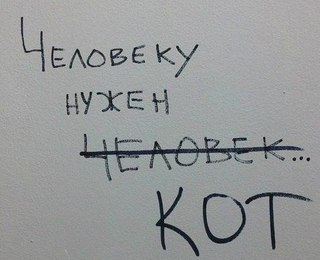 Человеку
нужен
человек...
КОТ